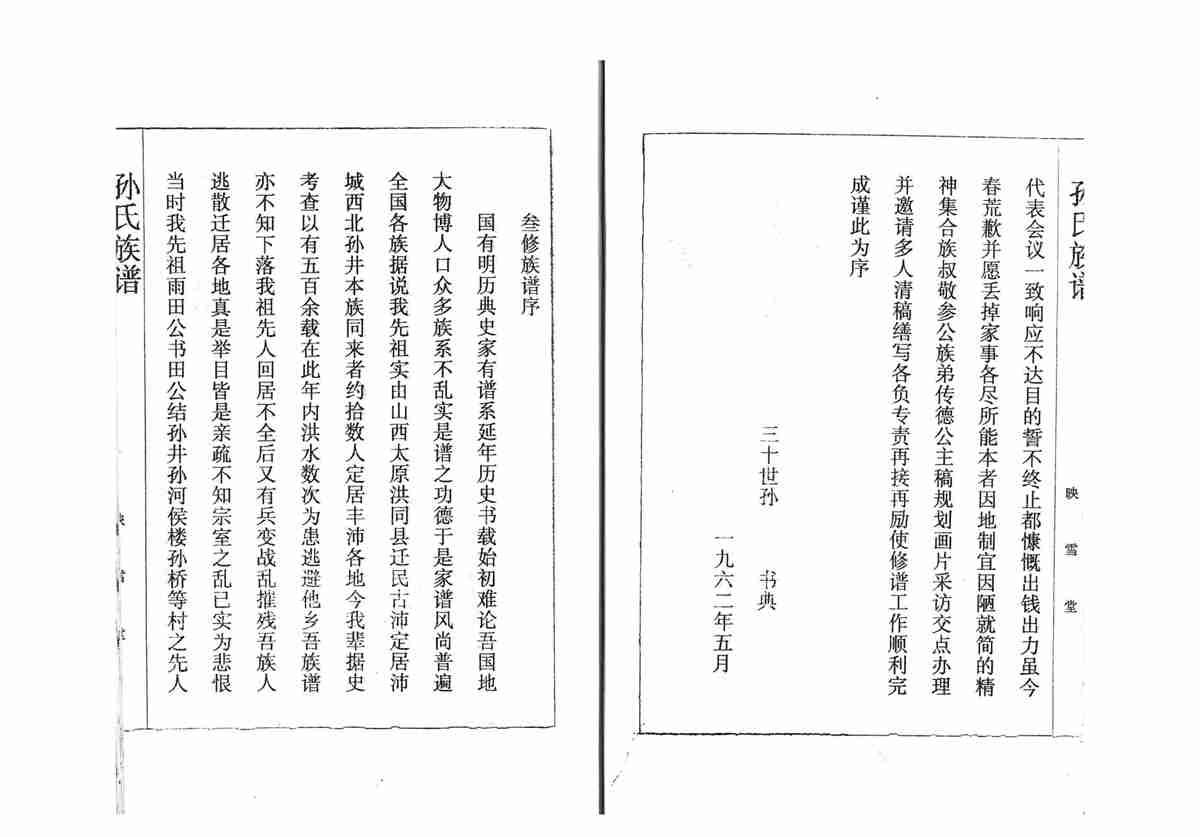 孙氏族谱
映雪堂
代表会议一致响应不达目的誓不终止都慷慨出钱出力虽今
春荒歉并愿丢掉家事各尽所能本者因地制宜因陋就简的精
神集合族叔敬参公族弟传德公主稿规划画片采访交点办理
并邀请多人清稿缮写各负专责再接再励使修谱工作顺利完
成谨此为序
三十世孙 书典
一九六二年五月
叁修族谱序
国有明历典史家有谱系延年历史书载始初难论吾国地
大物博人口众多族系不乱实是谱之功德于是家谱风尚普遍
全国各族据说我先祖实由山西太原洪同县迁民古沛定居沛
城西北孙井本族同来者约拾数人定居丰沛各地今我辈据史
考查以有五百余载在此年内洪水数次为患逃避他乡吾族谱
亦不知下落我祖先人回居不全后又有兵变战乱摧残吾族人
逃散迁居各地真是举目皆是亲疏不知宗室之乱已实为悲恨
当时我先祖雨田公书田公结孙井孙河侯楼孙桥等村之先人
孙氏族谱